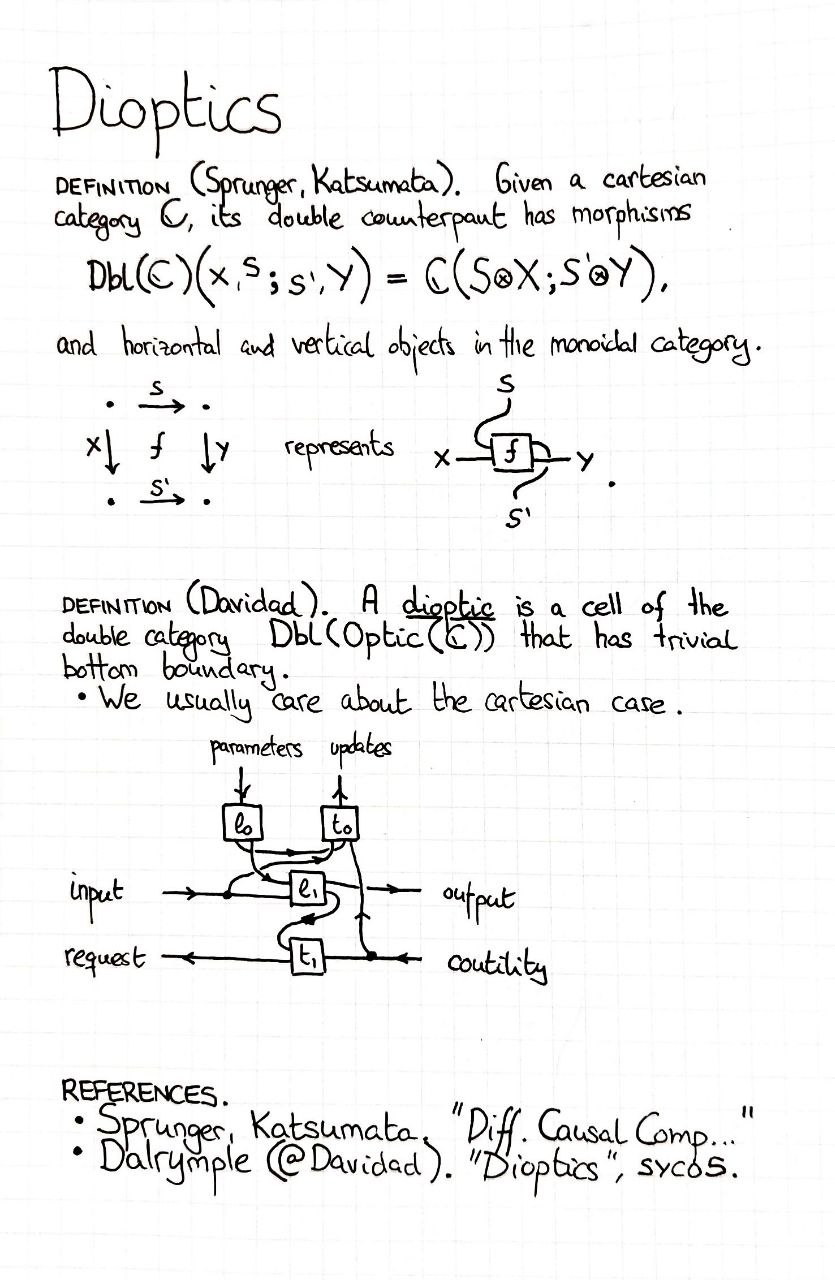 Dioptics
DEFINITION (Sprunger, Katsumata). Given a cartesian
category ℂ, its double counterpant has morphisms
Dbl(ℂ)(X,S;S',Y) = ℂ(S⊗X;S'⊗Y),
and horizontal and vertical objects in the monoidal category.
S
X f Y
S'
represents
S
X f Y
S'
.
DEFINITION (Davidad). A dioptic is a cell of the
double category Dbl(Optic(ℂ)) that has trivial
bottom boundary.
• We usually care about the cartesian case.
parameters updates
l₀ t₀
input l₁ output
request t₁ coutility
REFERENCES.
• Sprunger, Katsumata. "Diff. Causal Comp..."
• Dalrymple (@Davidad). "Dioptics", SYCO5.